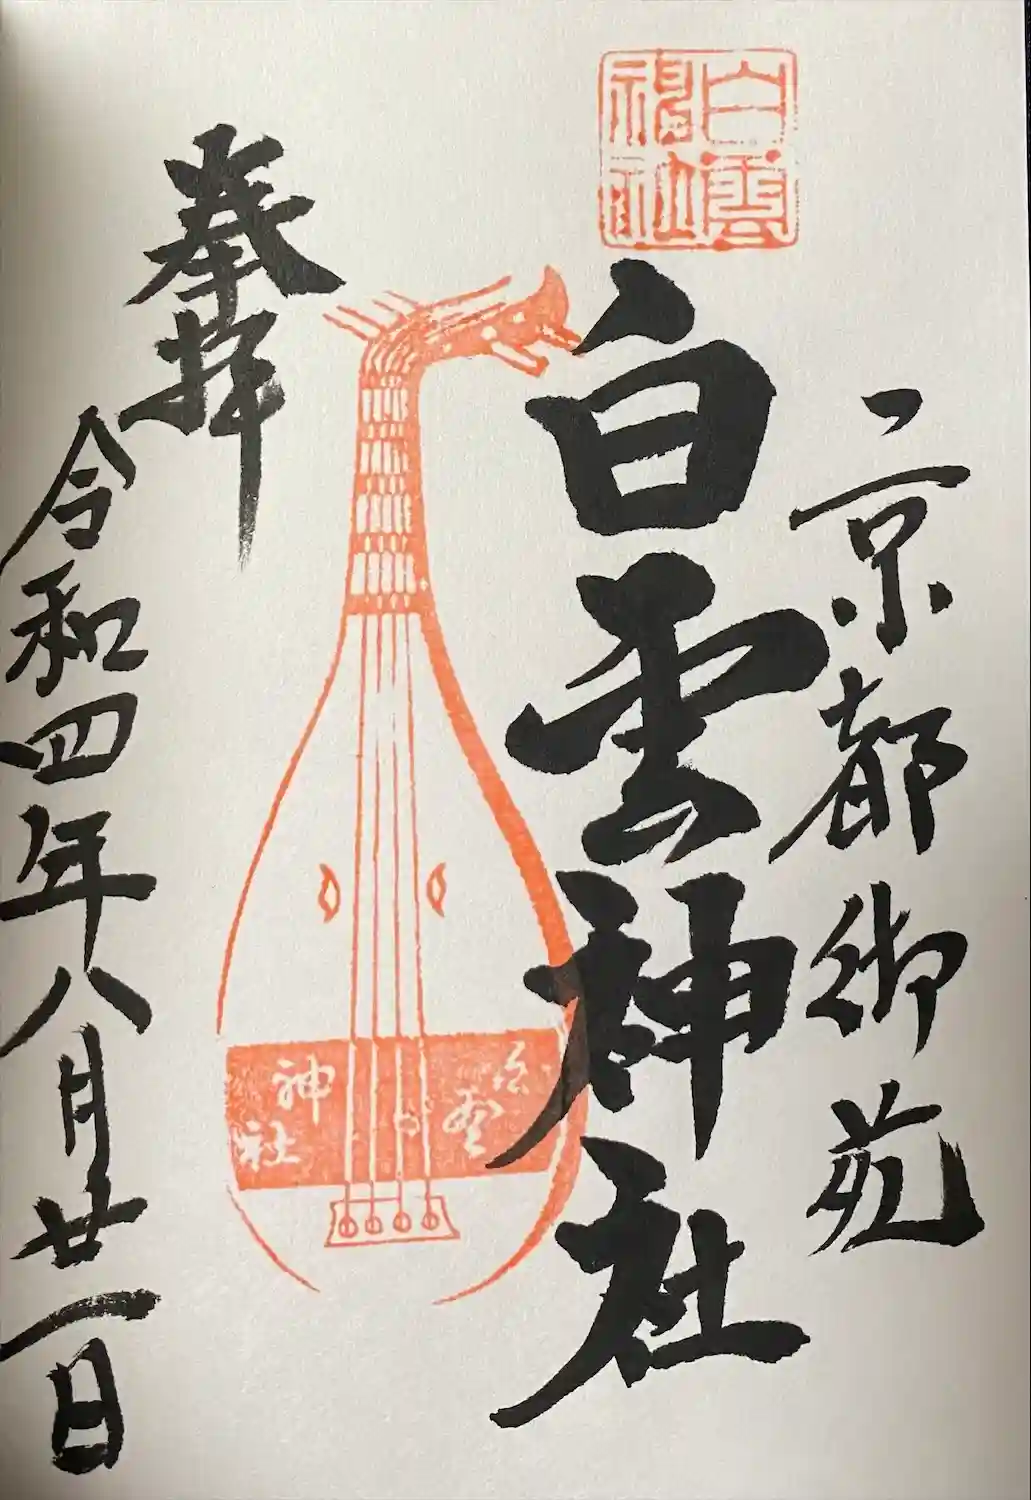 京都御苑
白雲神社
白雲神社
奉拝
令和四年八月廿一日
神社